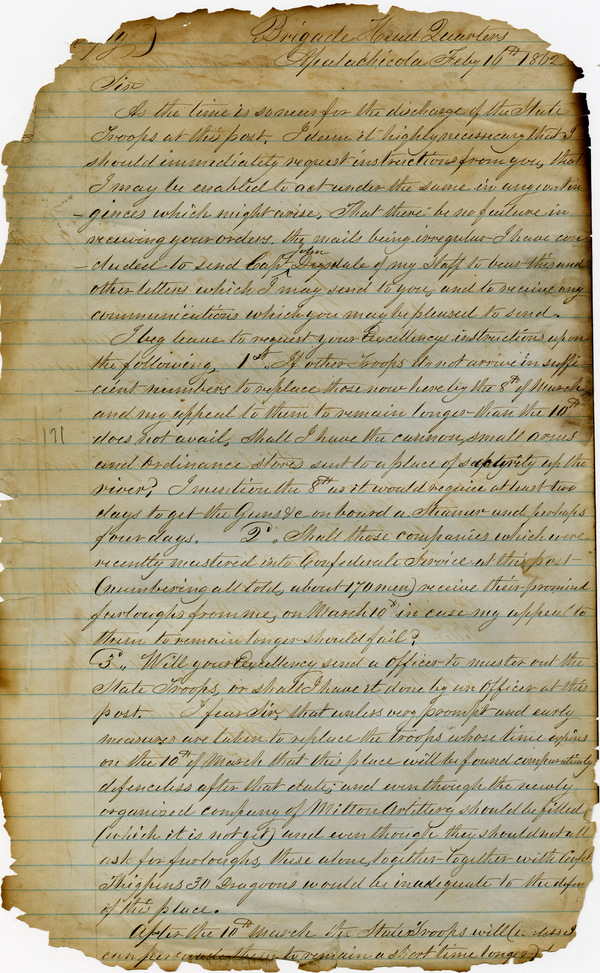 Brigade Head Quarters
Apalachicola Feby 16th 1862
Sir
As the time is so near for the discharge of the State
Troops at this post, I deem it highly necessary that I
should immediately request instructions from you, that
I may be enabled to act under the same in any contin
-gences which might arise. That there be no failure in
receiving your orders, the mails being irregular I have con
-cluded to send Capt. John Drysdale of my Staff to bear this and
other letters which I may send to you, and to receive any
communications which you may be pleased to send.
I beg leave to request your Excellencys instructions upon
the following, 1st. If other Troops do not arrive in suffi
cient numbers to replace those now here by the 8th of March
and my appeal to them to remain longer than the 10th
does not avail, Shall I have the cannon, small arms
and Ordinance stores sent to a place of safety up the
river? I mention the 8th as it would require at least two
days to get the Guns &c on board a Steamer and perhaps
four days. 2d.. Shall those companies which were
recently mustered into Confederate Service at this post
(numbering all told, about 170 men) receive their promised
furloughs from me, on March 10th in case my appeal to
them to remain longer should fail?
3d.. Will your Excellency send a Officer to muster out the
State Troops, or shall I have it done by an Officer at this
post. I fear Sir, that unless very prompt and early
measures are taken to replace the troops whose time expires
on the 10th of March that this place will be found comparatively
defenceless after that date; and even though the newly
organized company of Milton Artillery should be filled
(which it is not yet) and even though they should not all
ask for furloughs, these alone, together together with Capt
Thigpins 30 Dragoons would be inadequate to the defence
of this place.
After the 10th March the State Troops will (unless I
can persuade them to remain a short time longer)
171